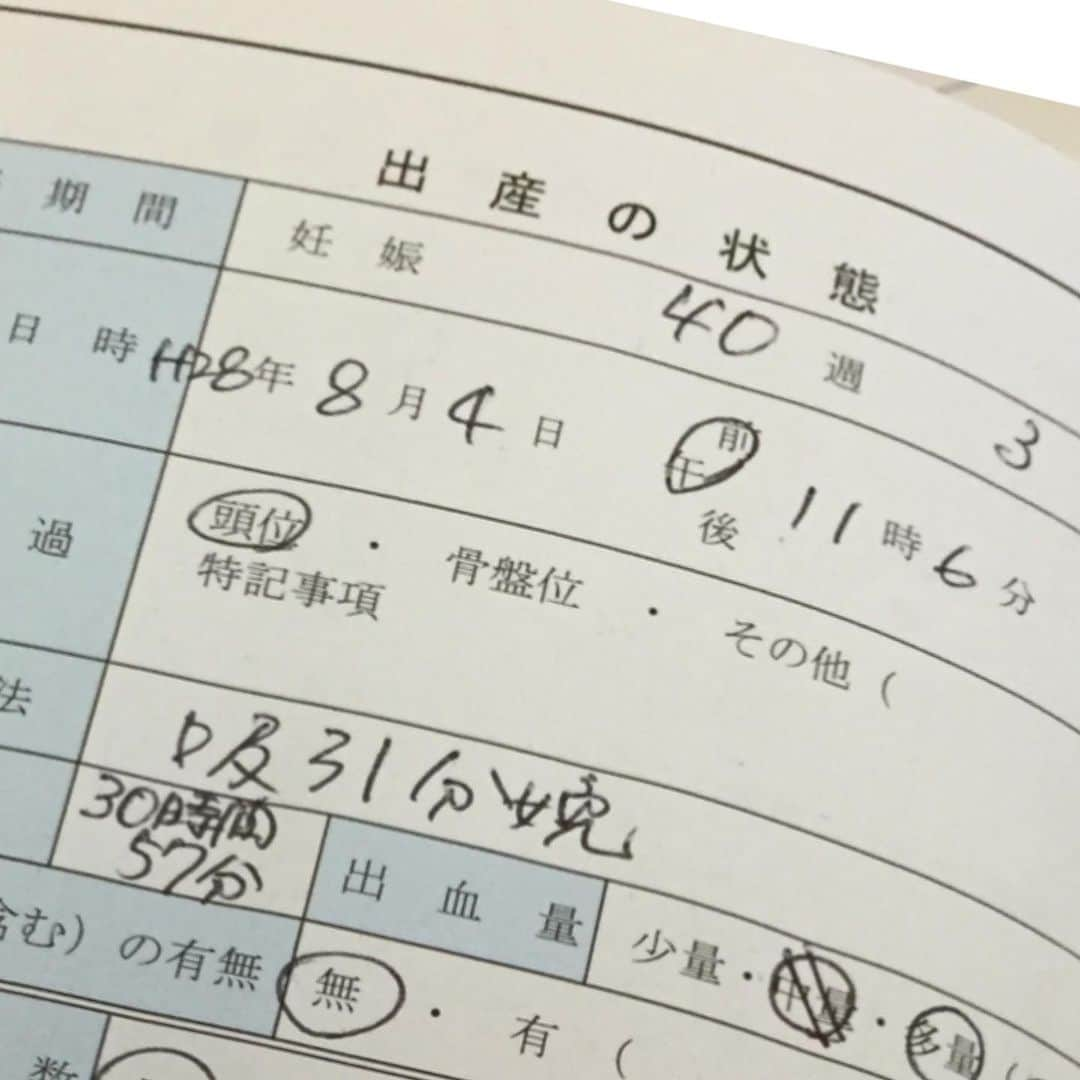 出産の状態
期間 妊娠 40 週 3
日時 H28年 8月 4日 午 前 後 11時 6分
過 頭位・骨盤位・その他(
特記事項
法 吸引分娩
30時間
57分 出血量 少量・中量・多量(
含む)の有無 無・有(
数